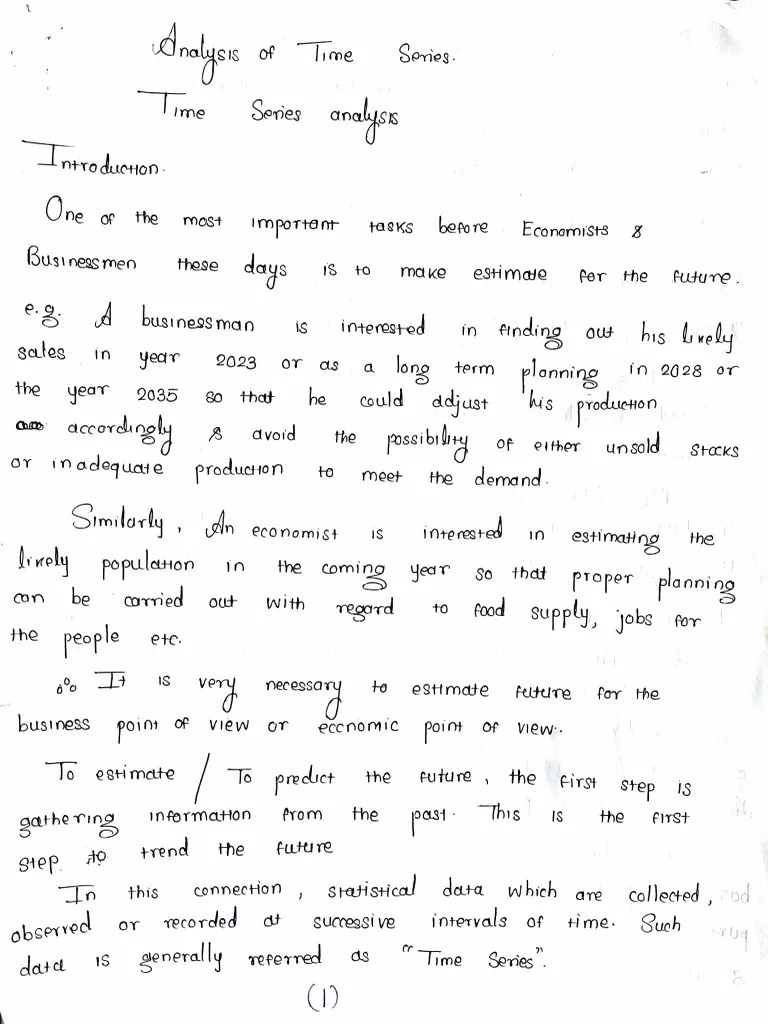 Analysis of Time Series.
Time Series analysis
Introduction.
One of the most important tasks before Economists &
Businessmen these days is to make estimate for the future.
e.g. A businessman is interested in finding out his likely
sales in year 2023 or as a long term planning in 2028 or
the year 2035 so that he could adjust his production
accordingly & avoid the possibility of either unsold stocks
or inadequate production to meet the demand.
Similarly, An economist is interested in estimating the
likely population in the coming year so that proper planning
can be carried out with regard to food supply, jobs for
the people etc.
∴ It is very necessary to estimate future for the
business point of view or economic point of view.
To estimate / To predict the future, the first step is
gathering information from the past. This is the first
step to trend the future
In this connection, statistical data which are collected,
observed or recorded at successive intervals of time. Such
data is generally referred as "Time Series".
(1)